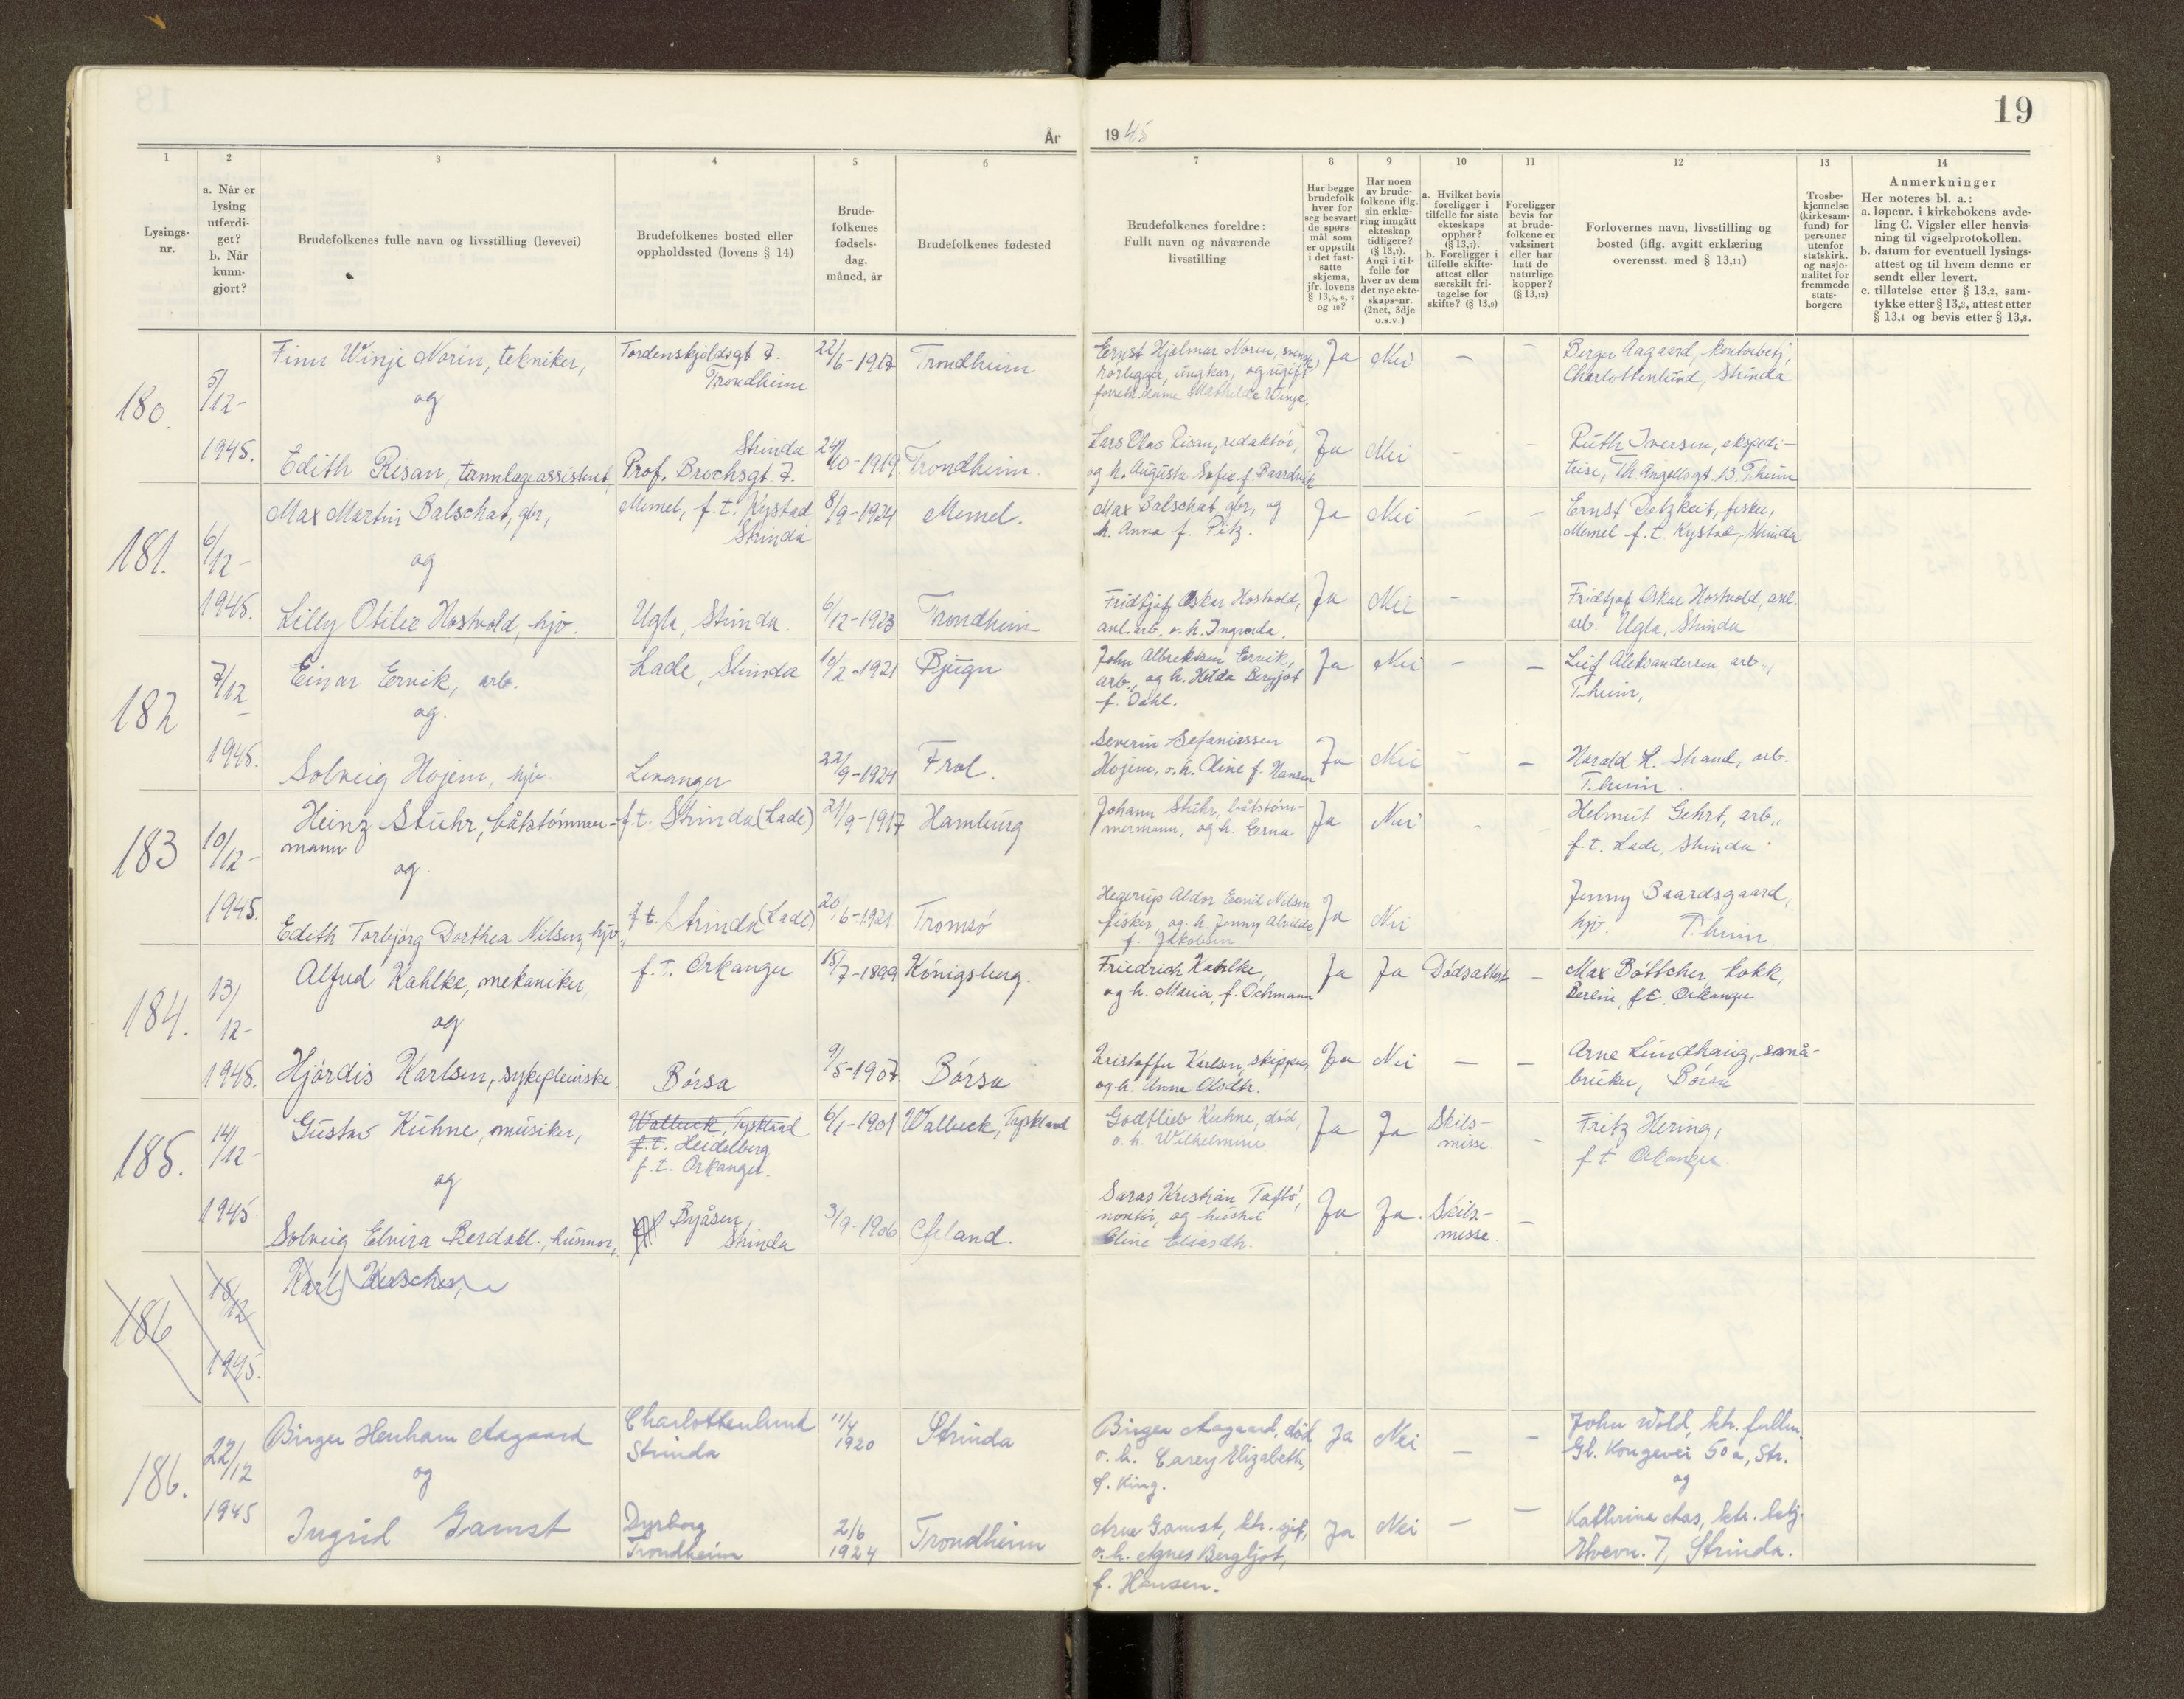 19
År
1945
1
2
3
4
5
6
7
8
9
10
11
12
13
14
Lysings-
nr.
a. Når er
lysing
utferdi-
get?
b. Når
kunn-
gjort?
Brudefolkenes fulle navn og livsstilling (levevei)
Brudefolkenes bosted eller
oppholdssted (lovens § 14)
Brude-
folkenes
fødsels-
dag,
måned, år
Brudefolkenes fødested
Brudefolkenes foreldre:
Fullt navn og nåværende
livsstilling
Har begge
brudefolk
hver for
seg besvart
de spørs-
mål som
er oppstilt
i det fast-
satte
skjema,
jfr. lovens
§ 13,5, 6, 7
og 10?
Har noen
av brude-
folkene iflg.
sin erklæ-
ring inngått
ekteskap
tidligere?
(§ 13,7).
Angi i til-
felle for
hver av dem
det nye ekte-
skaps-nr.
(2net, 3dje
o.s.v.)
a. Hvilket bevis
foreligger i
tilfelle for siste
ekteskaps
opphør?
(§ 13,7).
b. Foreligger i
tilfelle skifte-
attest eller
særskilt fri-
tagelse for
skifte? (§ 13,9)
Foreligger
bevis for
at brude-
folkene er
vaksinert
eller har
hatt de
naturlige
kopper?
(§ 13,12)
Forlovernes navn, livsstilling og
bosted (iflg. avgitt erklæring
overensst. med § 13,11)
Trosbe-
kjennelse
(kirkesam-
fund) for
personer
utenfor
statskirk.
og nasjo-
nalitet for
fremmede
stats-
borgere
Anmerkninger
Her noteres bl. a.:
a. løpenr. i kirkebokens avde-
ling C. Vigsler eller henvis-
ning til vigselprotokollen.
b. datum for eventuell lysings-
attest og til hvem denne er
sendt eller levert.
c. tillatelse etter § 13,2, sam-
tykke etter § 13,3, attest etter
§ 13,4 og bevis etter § 13,8.
180.
5/12-
1945.
Finn Winje Norin, tekniker,
og
Edith Risan, tannlægeassistent,
Tordenskjoldsgt 7.
Trondheim
Strinda
Prof. Brochsgt. 7.
22/6-1917
24/10-1919
Trondheim
Trondheim.
Ernst Hjalmar Norin, svensk,
rørlegger, ungkar, og ugift
forretn.dame Mathilde Winje.
Lars Olao Risan, redaktör,
og h. Augusta Sofie f. Baardvik
Ja Nei - -
Ja Nei - -
Berger Aagaard, kontorbetj,
Charlottenlund, Strinda
Ruth Iversen, ekspedi-
trise, Th. Angellsgt 13. Th.eim
181.
6/12-
1945.
Max Martin Balschat, gbr,
og
Lilly Otilie Hostvold, hjv.
Memel, f.t. Kystad
Strinda
Ugla, Strinda.
8/9-1924
6/12-1923
Memel.
Trondheim
Max Balschat, gbr, og
h. Anna f. Pitz.
Fridtjof Oskar Hostvold,
anl.arb. o. h. Ingvarda.
Ja Nei - -
Ja Nei -
Ernst Detzkeit, fisker,
Memel f.t. Kystad, Strinda
Fridtjof Oskar Hostvold, anl.
arb. Ugla, Strinda
182
7/12-
1945.
Einar Ervik, arb.
og.
Solveig Hojem, hjv.
Lade, Strinda
Levanger
10/2-1921
22/9-1924
Bjugn
Frol.
John Albrektsen Ervik,
arb., og h. Helda Bergjot
f. Dahl.
Severin Sefaniassen
Hojem, o.h. Oline f. Hansen
Ja Nei - -
Ja Nei - -
Leif Aleksandersen arb.,
Th.eim,
Harald H. Strand, arb.
Th.eim.
183
10/12-
1945.
Heinz Stuhr, båtstömmer-
mann
og.
Edith Torbjørg Dorthea Nilsen, hjv.,
f.t. Strinda (Lade)
f.t. Strinda (Lade)
21/9-1917
20/6-1921
Hamburg
Tromsö
Johann Stuhr, båtstöm-
mermann, og h. Erna
Hegerup Aldor Emil Nilsen
fisker, og h. Jenny Alvilde
f. Jakobsen
Ja Nei -
Ja Nei
Helmut Gehrt, arb.,
f.t. Lade, Strinda
Jenny Baardsgaard,
hjv. Th.eim.
184.
13/12-
1945.
Alfred Kahlke, mekaniker,
og
Hjördis Karlsen, sykepleierske.
f.T. Orkanger
Börsa
18/7-1899
9/5-1907.
Königsberg.
Börsa
Friedrich Kahlke,
og h. Maria, f. Ochmann
Kristoffer Karlsen, skipper,
og h. Anna Olsdtr.
Ja Ja Dödsattest -
Ja Nei - -
Max Böttcher, kokk,
Berlin, f.t. Orkanger
Arne Lundhaug, små-
bruker, Börsa
185.
14/12-
1945
Gustav Kühne, musiker,
og
Solveig Elvira Berdahl., husmor,
Walbeck, Tyskland
f.t. Heidelberg
f.t. Orkanger.
Byåsen,
Strinda
6/1-1901
3/9-1906
Walbeck, Tyskland
Godtlieb Kuhne, död,
o. h. Wilhelmine
Saras Kristian Taftö,
montör, og hustru
Eline Eliasdtr.
Ja Ja Skils-
misse. -
Ja Ja. Skils-
misse. -
Fritz Hering,
f.t. Orkanger.
186
18/12
1945.
Karl
186.
22/12
1945
Birger Henham Aagaard
og
Ingrid Gamst
Charlottenlund
Strinda
Dyrborg
Trondheim
11/4
1920
2/6
1924
Strinda
Trondheim
Birger Aagaard, död
o. h. Carey Elizabeth,
f. King.
Arne Gamst, ktr. sjef,
o. h. Agnes Bergljot,
f. Hansen.
Ja Nei - -
Ja Nei - -
John Wold, ktr. fullm.
Gl. Kongevei 50 a, Str.
og
Kathrine Aas, ktr. betj.
7, Strinda.